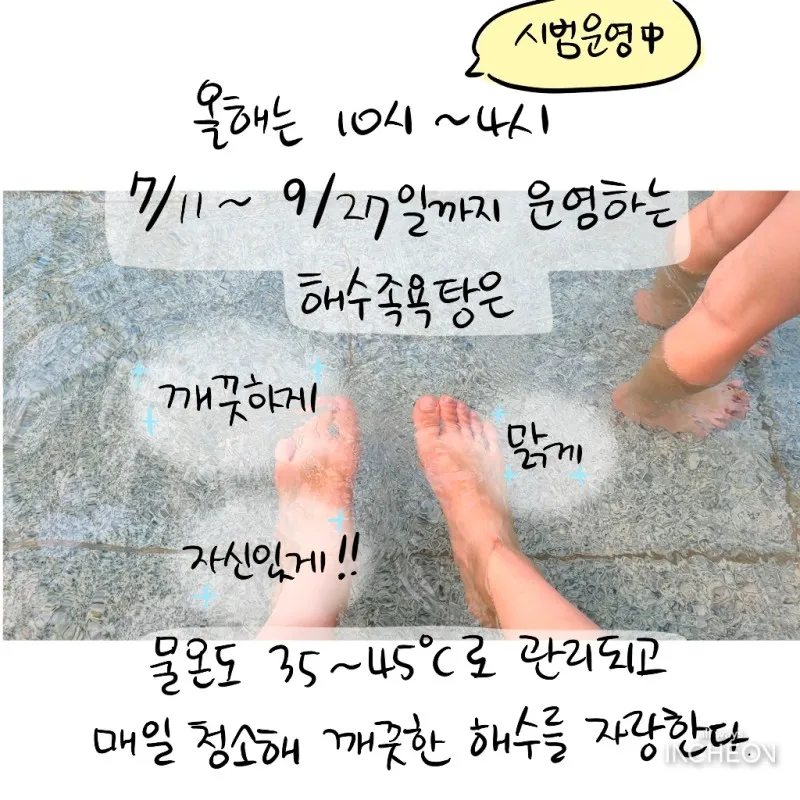 시범운영中
올해는 10시~4시
7/11~ 9/27일까지 운영하는
해수족욕탕은
깨끗하게
맑게
자신있게!!
물온도 35~45℃로 관리되고
매일 청소해 깨끗한 해수를 자랑한다.
INCHEON